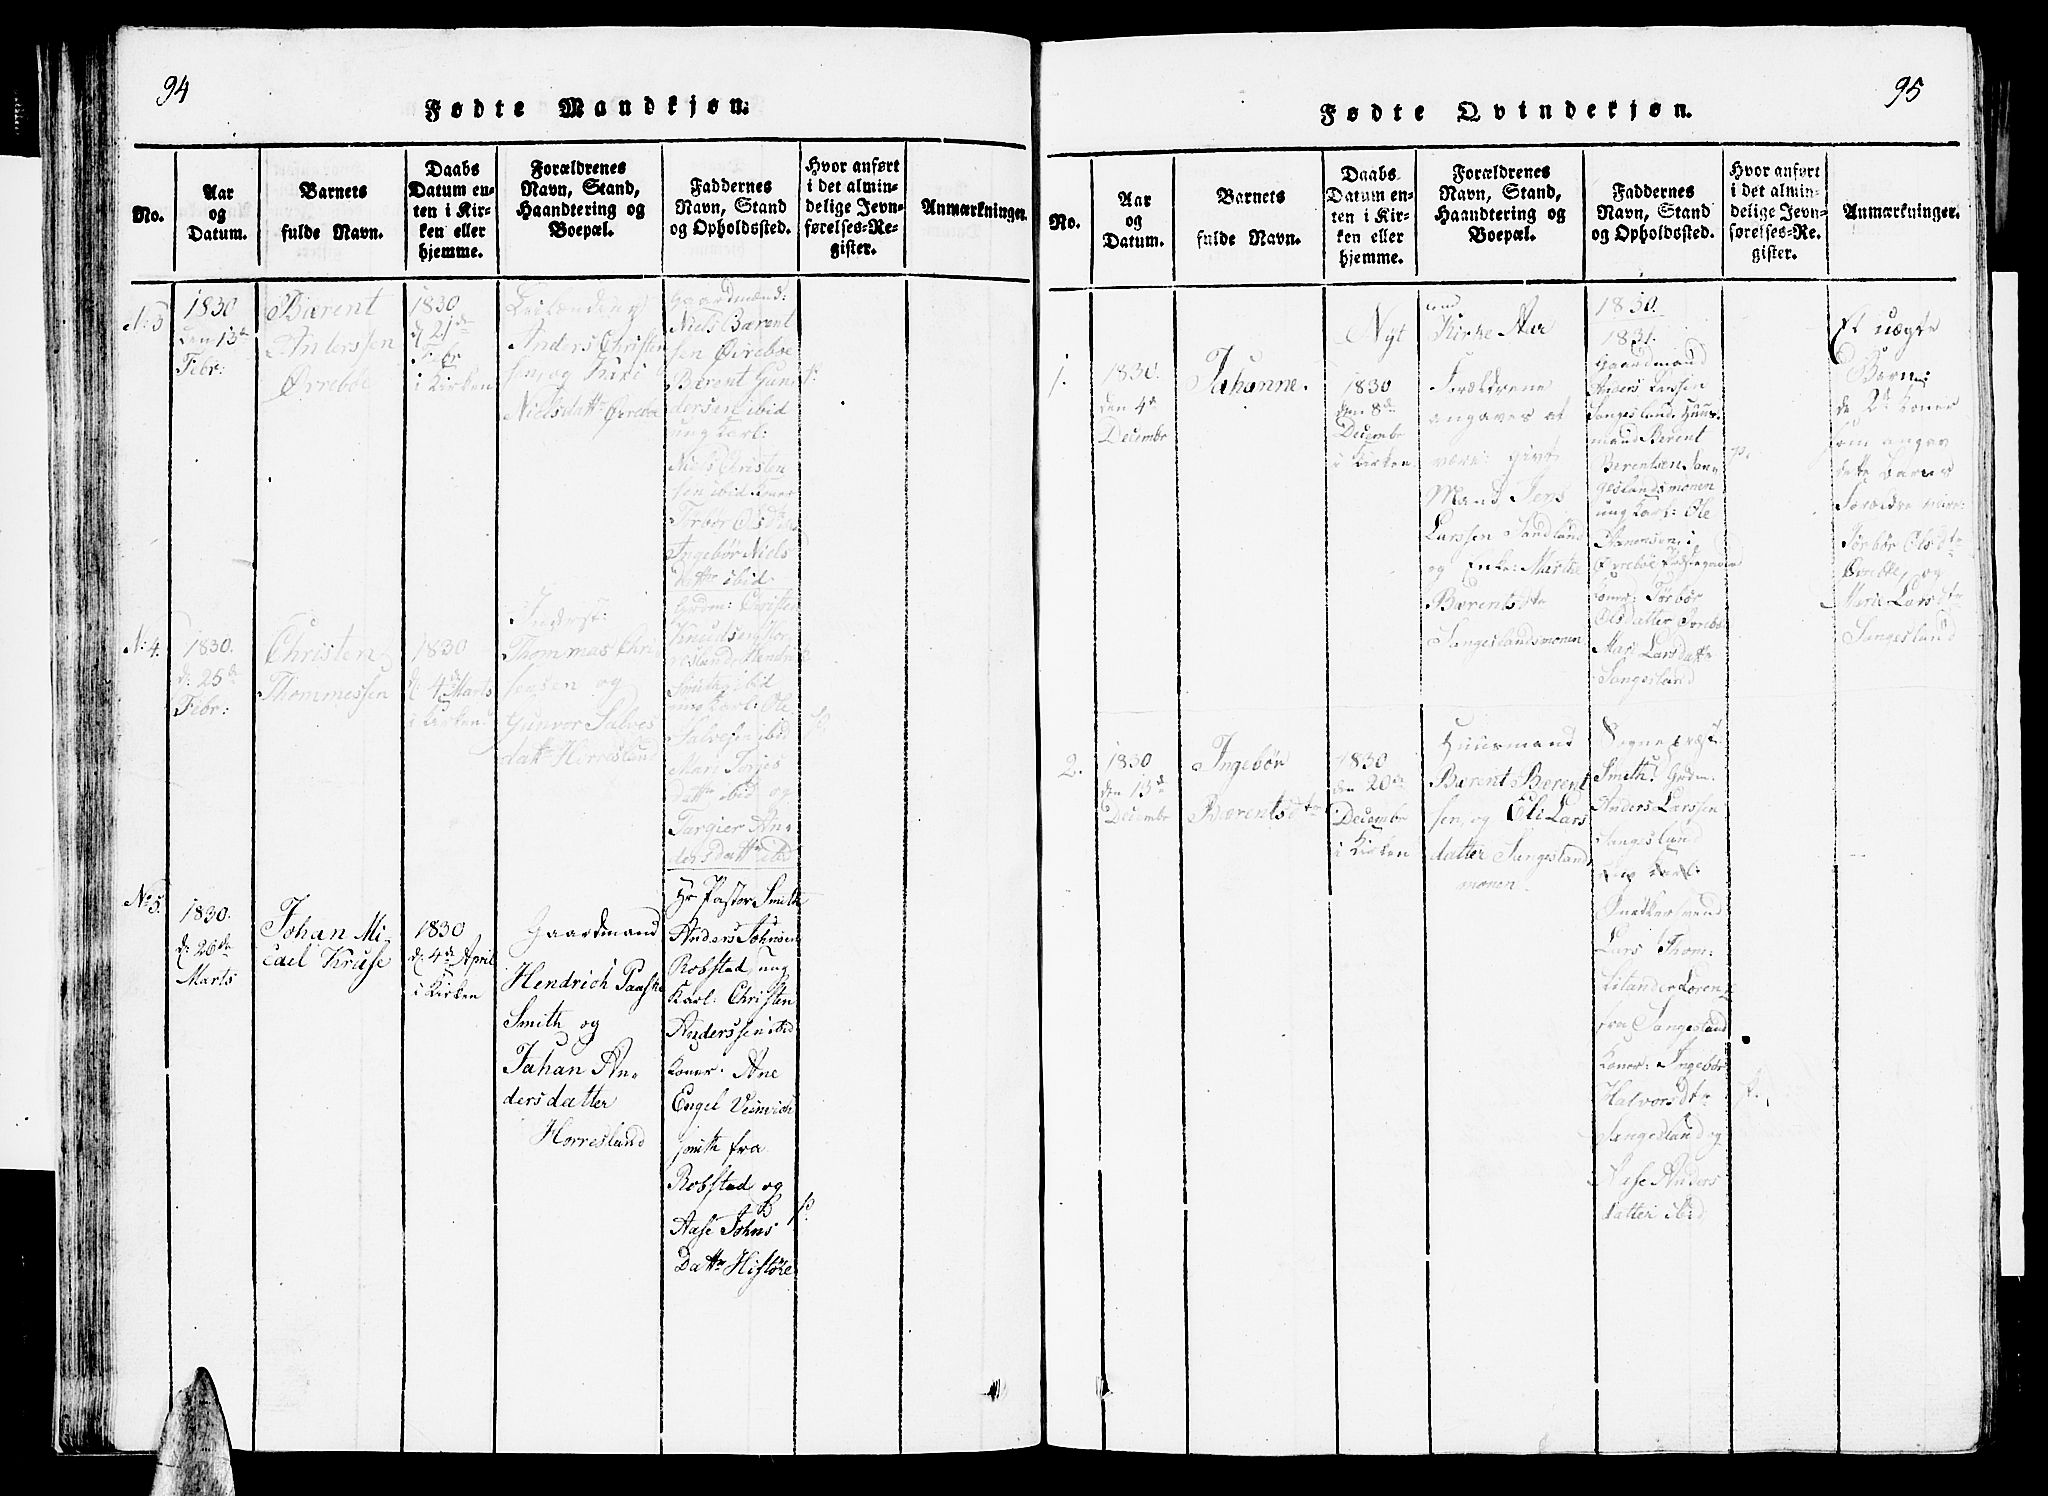 94
Fødte Mandkjøn.
No.
Aar
og
Datum.
Barnets
fulde Navn.
Daabs
Datum en-
ten i Kir-
ken eller
hjemme.
Forældrenes
Navn, Stand,
Haandtering og
Boepæl.
Faddernes
Navn, Stand
og Opholdssted.
Hvor anført
i det almin-
delige Jevn-
førelses-Re-
gister.
Anmærkninger.
N: 3
1830
den 13de
Febr:
Bærent
Anderssen
Øvrebøe
1830
d 21de
Febr
i Kirken
Anders Christen
sen, og Kari
Nielsdattr Øvrebø
Gaardmænd:
Niels Bærent
sen Øvrebøe
Bærent Gun
dersen ibid
ung Karl:
Niels Christen
sen ibid Koner
Torbør Olsdtr
Ingebør Niels
Dattr ibid.
p.
N: 4.
1830.
d: 25de
Febr:
Christen
Thommessen
1830
d: 4de Marts
i Kirken
Inderst:
Thommas Chri
sensen og
Gunvor Salves
datt Horresland
Grdm: Christen
Knudsen Hor
resland Hendrik
Smith ibid
ung Karl: Ole
Salvesen ibid
Mari Torjes
Dattr ibid og
Targier An-
dersdattr ibid
p.
No 5.
1830.
d: 26de
Marts
Johan Mi-
cael Kruse
1830
d: 4de April
i Kirken
Gaardmand
Hendrich Paaske
Smith og
Johan An-
dersdatter
Horresland
Hr Pastor Smith
Anders Johnsen
Robstad, ung
Karl: Christen
Anderssen ibid
Koner: Ane
Engel Veinvich
smith fra
Robstad og
Aase Johns
Dattr Histøle
p.
95
Fødte Qvindekjøn.
No.
Aar
og
Datum.
Barnets
fulde Navn.
Daabs
Datum en-
ten i Kir-
ken eller
hjemme.
Forældrenes
Navn, Stand,
Haandtering og
Boepæl.
Faddernes
Navn, Stand
og Opholdssted.
Hvor anført
i det almin-
delige Jevn-
førelses-Re-
gister.
Anmærkninger.
Nyt
Kirke Aar
1830.
1831.
1.
1830.
den 4de
Decembr
Johanne.
1830
den 8de
Decembr
i Kirken
Forældrene
angaves at
være: givt
Mand Jens
Larssen Sandland
og Enke: Marthe
Bærentsdtr
Sangeslandsmonen
Gaardmand
Anders Larssen
Sangesland, Huus-
mand Berent
Berentsen San-
geslandsmonen
ung Karl: Ole
i
Øvrebøe Præstegaard
Koner: Torbør
Olsdatter Øvrebø
Mari Larsdattr
Sangesland
p.
Et uægte
Barn:
de 2de Koner
som angav
dette Barns
Forældre vare:
Torbør Olsdtr
Øvrebø, og
Mari Larsdtr
Sangesland
2.
1830
den 13de
Decembr
Ingebør
Bærentsdtr
1830
den 20de
Decembr
i Kirken
Huusmand
Bærent Bærent
sen, og Eli Lars
datter Sangeslands
monen
Sognepræst
Smith. Grdm:
Anders Larssen
Sangesland
ung Karl:
Snedkersvend
Lars Thom-
fra Sangesland
Koner: Ingebør
Halvorsdtr
Sangesland og
Aase Anders
datter ibid
p.